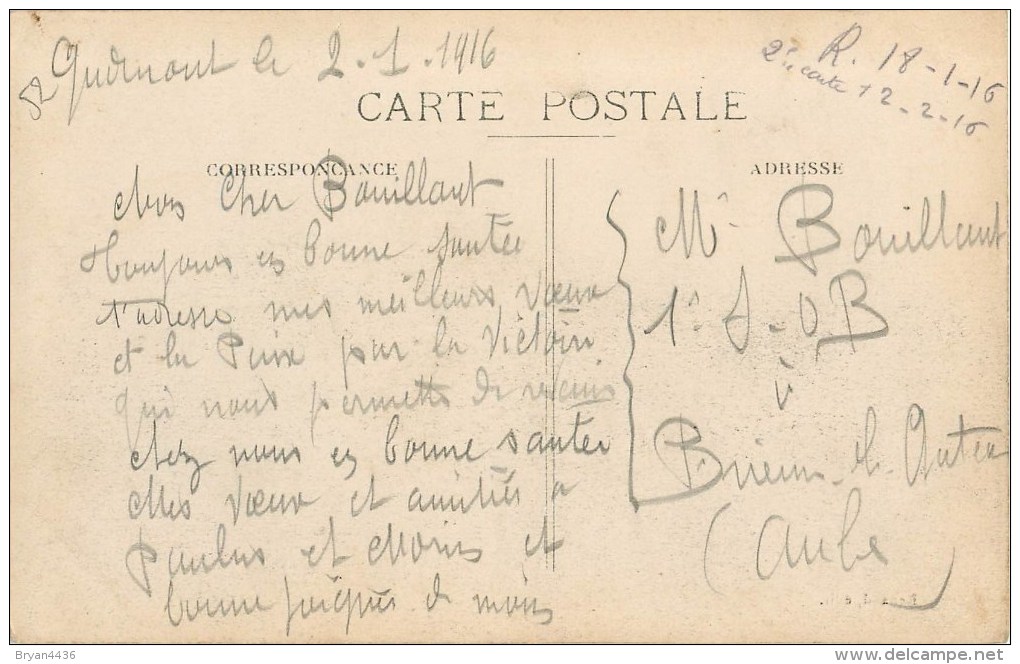 Gudmont le 2-1-1916
R. 18-1-16
2è carte 12-2-16
CARTE POSTALE
CORRESPONCANCE
ADRESSE
Mon Cher Bouillant
Toujours en bonne santée
t'adresse mes meilleurs vœux
et la Paix par la Victoire
qui nous permette de revenir
chez nous en bonne santée
Mes Vœux et amitiés a
Paulus et Morin et
bonne poignés de mains
Mr Bouillant
1e S-OB
à
Brienne-le-Château
(Aube)
Bryan4436
delcampe.net